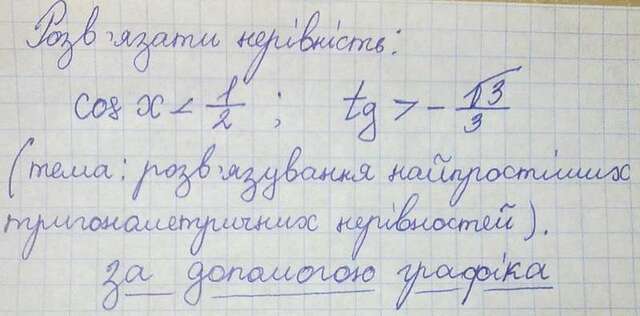 Розв'язати нерівність:
cos x < 1/2 ; tg > - √3/3
(тема: розв'язування найпростіших
тригонометричних нерівностей).
за допомогою графіка